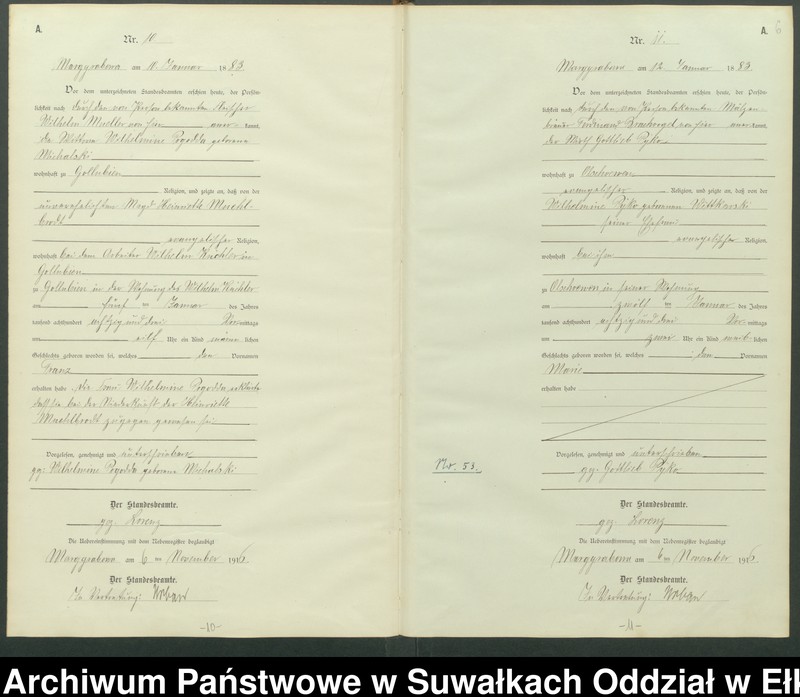 A.
Nr. 10
Marggrabowa am 11. Januar 1883
Vor dem unterzeichneten Standesbeamten erschien heute, der Persön-
lichkeit nach durch den von Person bekannten
Wilhelm von hier kannt,
die Wittwe Wilhelmine Pogodda geborene
Michalski
wohnhaft zu Gollubien
Religion, und zeigte an, daß von der
unverehelichten Magd Heinriette Machl-
brodt
evangelischer Religion,
wohnhaft bei dem Arbeiter Wilhelm in
Gollubien
zu Gollubien in der Wohnung des Wilhelm
am fünf ten Januar des Jahres
tausend achthundert achtzig und drei Vor mittags
um elf Uhr ein Kind männ lichen
Geschlechts geboren worden sei, welches den Vornamen
Franz
erhalten habe. Die Frau Wilhelmine Pogodda erklärte
daß sie bei der Niederkunft der Heinriette
Machlbrodt zugegen gewesen sei
Vorgelesen, genehmigt und unterschrieben
gez. Wilhelmine Pogodda geborene Michalski
Der Standesbeamte.
gez. Lorenz
Die Uebereinstimmung mit dem Nebenregister beglaubigt
Marggrabowa am 6 ten November 1916
Der Standesbeamte.
In Vertretung: Urban
-10-
A. 6
Nr. 11.
Marggrabowa am 12. Januar 1883
Vor dem unterzeichneten Standesbeamten erschien heute, der Persön-
lichkeit nach durch den von Person bekannten
Ferdinand von hier kannt,
der Wirth Gottlieb Pyko
wohnhaft zu Olschewen
evangelischer Religion, und zeigte an, daß von der
Wilhelmine Pyko geborenen Wittkowski
seiner Ehefrau
evangelischer Religion,
wohnhaft bei ihm
zu Olschewen in seiner Wohnung
am zwölf ten Januar des Jahres
tausend achthundert achtzig und drei Vor mittags
um zwei Uhr ein Kind weib lichen
Geschlechts geboren worden sei, welches den Vornamen
Marie
erhalten habe
Vorgelesen, genehmigt und unterschrieben
gez. Gottlieb Pyko
No. 53.
Der Standesbeamte.
gez. Lorenz
Die Uebereinstimmung mit dem Nebenregister beglaubigt
Marggrabowa am 6 ten November 1916
Der Standesbeamte.
In Vertretung: Urban
-11-
Archiwum Państwowe w Suwałkach Oddział w Eł